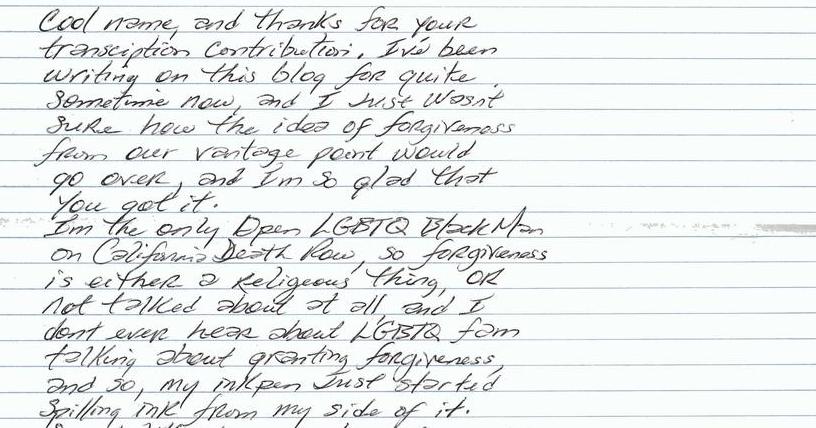 Cool name, and thanks for your
transciption contribution. I've been
writing on this blog for quite
sometime now, and I Just Wasn't
sure how the idea of forgiveness
from our vantage point would
go over, and I'm so glad that
you got it.
I'm the only Open LGBTQ Black Man
on California Death Row, so forgiveness
is either a religeous thing, OR
not talked about at all, and I
dont ever hear about LGBTQ fam
talking about granting forgiveness,
and so, my inkpen Just started
spilling ink from my side of it.